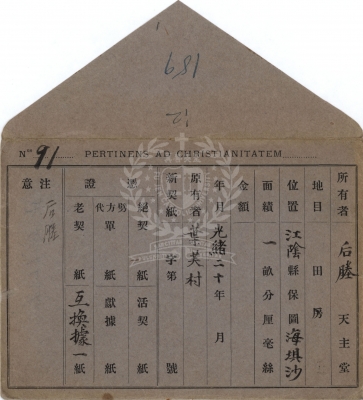 189
12
Nº 91 PERTINENS AD CHRISTIANITATEM
所有者 后塍 天主堂
地目 田 房
位置 江陰縣保圖海埧沙
面積 一畝分厘毫絲
金額
年月 光緒二十年 月
原有者 葉英村
新契紙 字第 號
憑證
絕契 紙 活契 紙
代方單 紙 獻據 紙
老契 紙 互換據一紙
注意
后塍